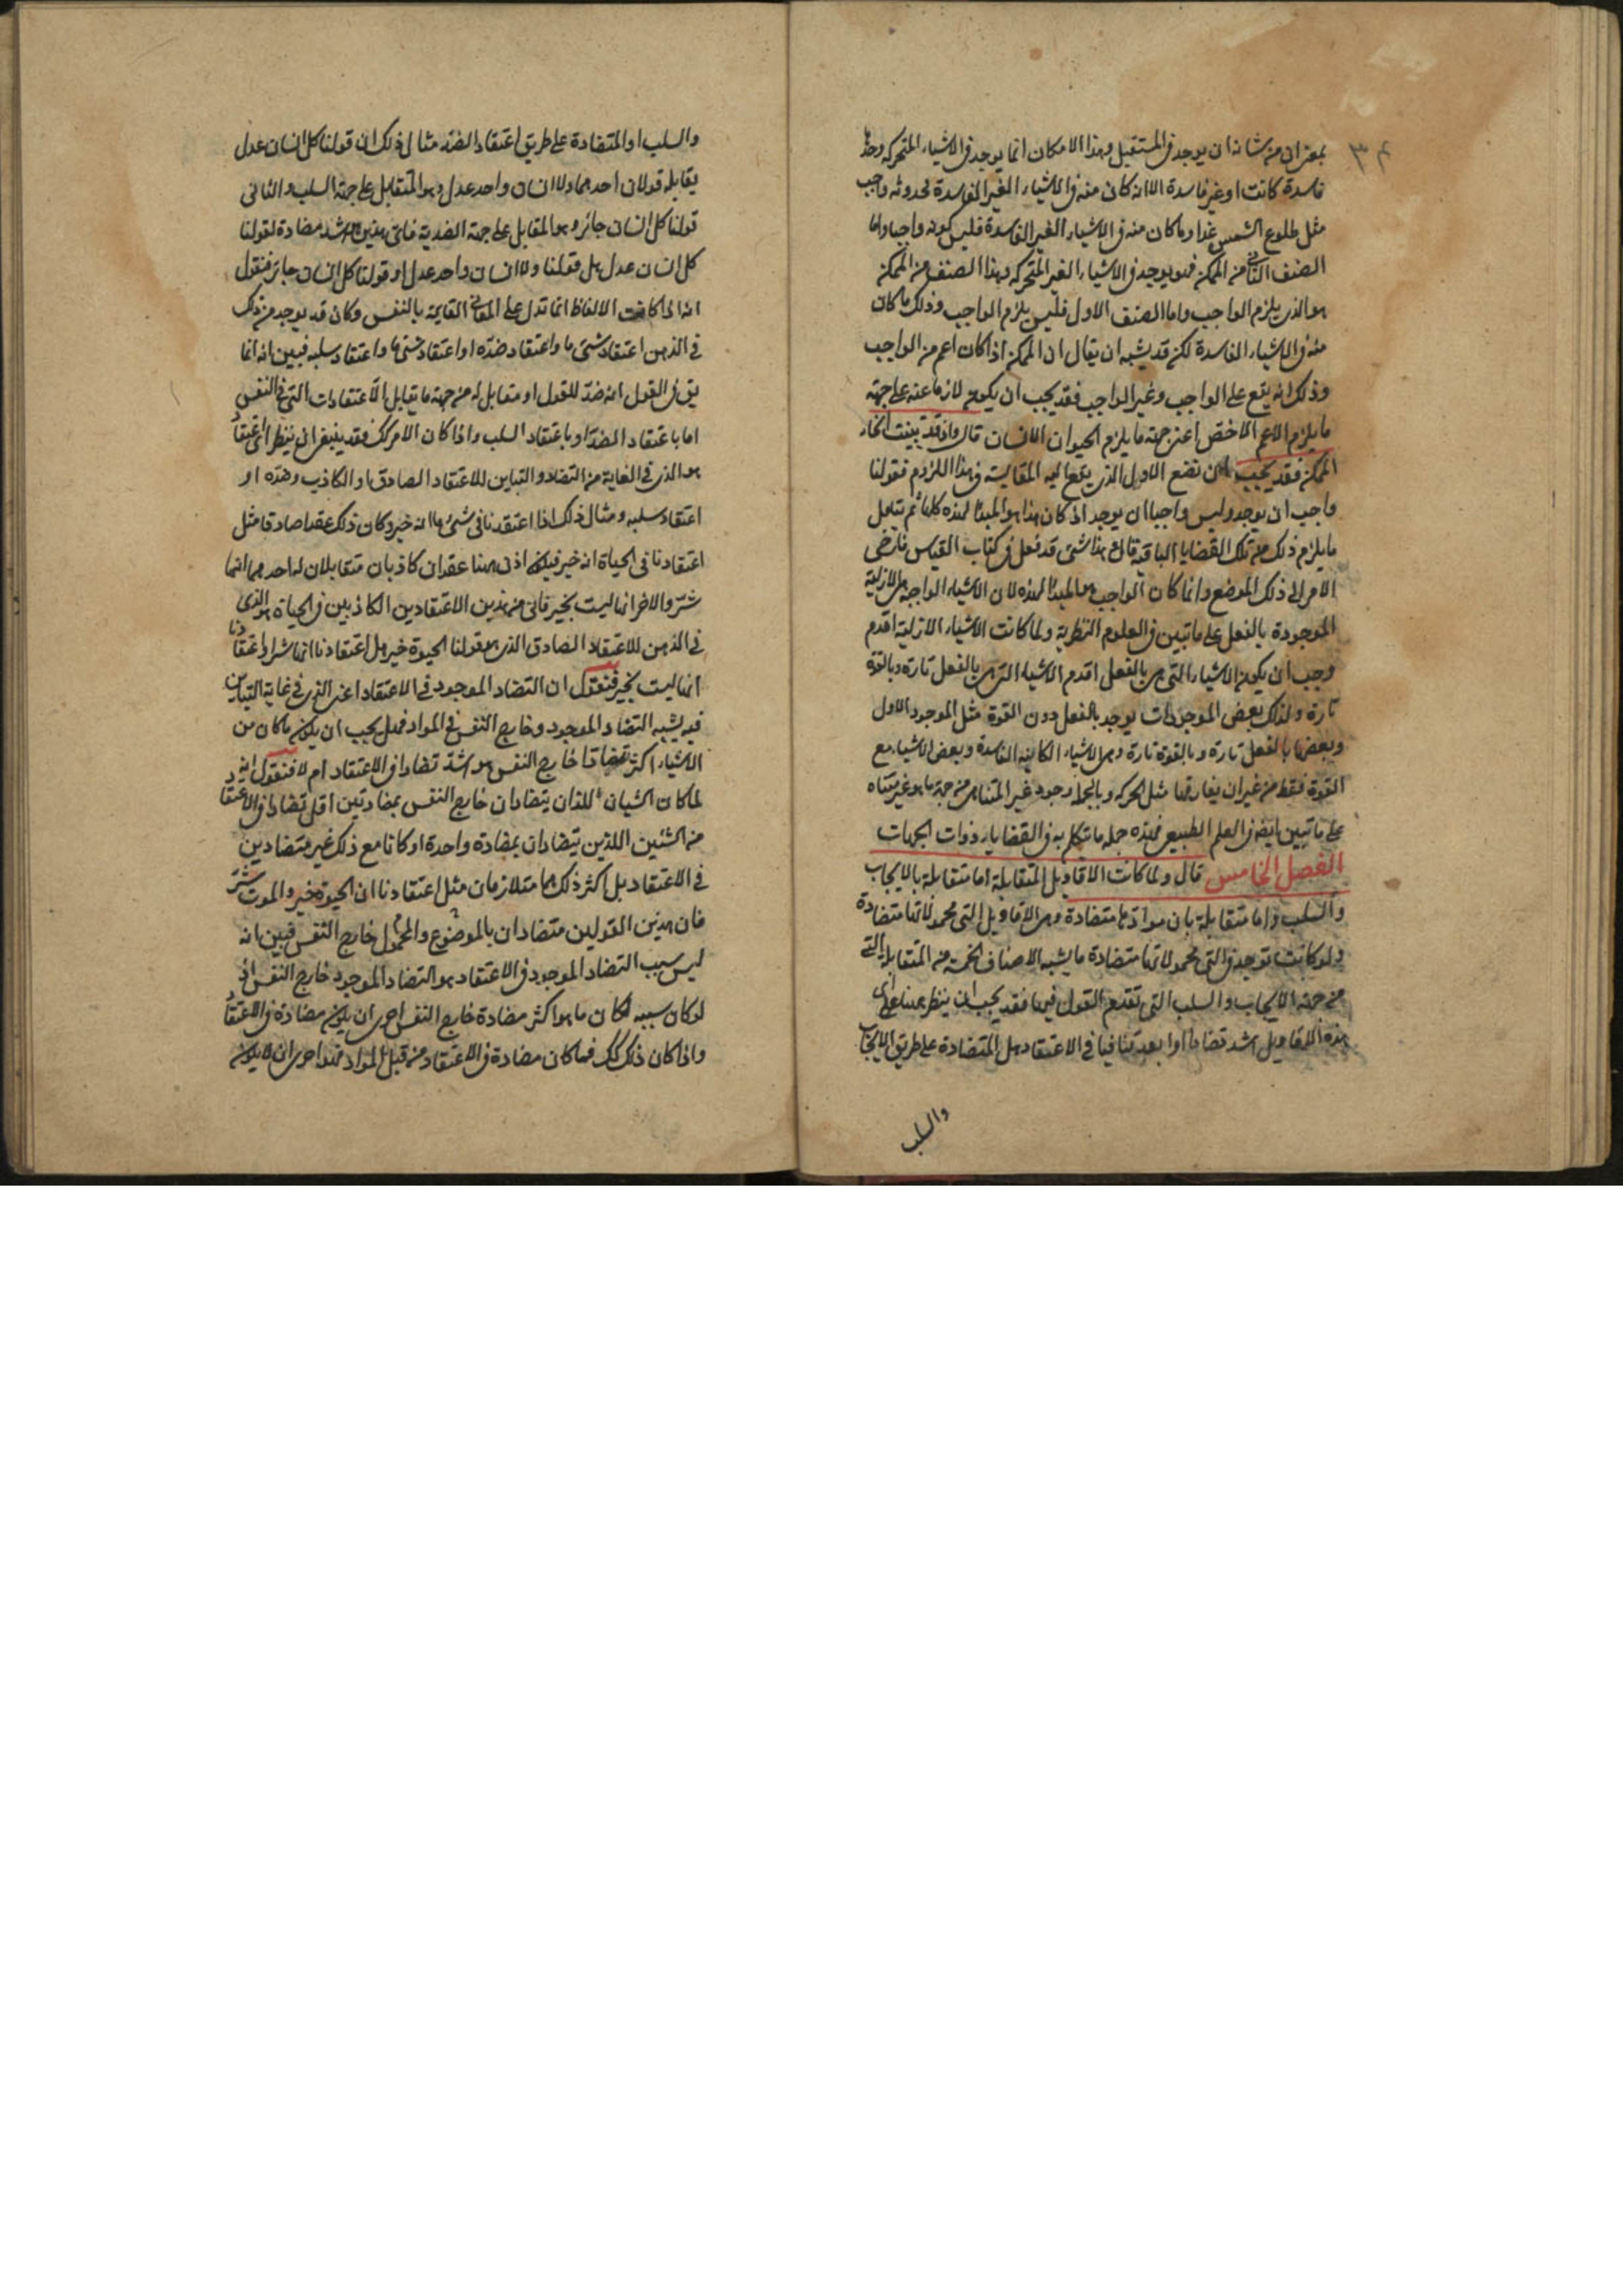 ٣٤
بمعنى ان من شانه ان يوجد فى المستقبل وهذا الامكان انما يوجد فى الاشياء المتحركة وحدها
فاسدة كانت او غير فاسدة الا انه كان منه فى الاشياء الغير الفاسدة فحدوثه واجب
مثل طلوع الشمس غدا وما كان منه فى الاشياء الغير الفاسدة فليس كونه واجبا واما
الصنف الثانى من الممكن فهو يوجد فى الاشياء الغير المتحركة وهذا الصنف من الممكن
هو الذى يلزم الواجب واما الصنف الاول فليس يلزم الواجب وذلك ما كان
منه فى الاشياء الفاسدة لكن قد يشبه ان يقال ان الممكن اذا كان اعم من الواجب
وذلك انه يقع على الواجب وغير الواجب فقد يجب ان يكون لازما عنه على جهة
ما يلزم الاعم الاخص اعنى جهة ما يلزم الحيوان الانسان قال واذ قد تبينت انحاء
الممكن فقد يجب ان نضع الاول الذى يقع اليه المقايسة فى هذا اللزوم فقولنا
واجب ان يوجد وليس واجبا ان يوجد اذ كان هذا هو المبدأ لهذه كلها ثم نتامل
ما يلزم ذلك من تلك القضايا الباقية قال وهذا شىء قد فعل فى كتاب القياس فارضى
الامر الى ذلك الموضع وانما كان الواجب هو المبدأ لهذه لان الاشياء الواجبة هى الازلية
الموجودة بالفعل على ما تبين فى العلوم النظرية ولما كانت الاشياء الازلية اقدم
وجب ان يكون الاشياء التى هى بالفعل اقدم الاشياء التى هى بالفعل تارة وبالقوة
تارة ولذلك بعض الموجودات يوجد بالفعل دون القوة مثل الموجود الاول
وبعضها بالفعل تارة وبالقوة تارة وهى الاشياء الكاينة الفاسدة وبعض الاشياء مع
القوة فقط من غير ان يفارقها مثل الحركة وبالجملة وجود غير المتناهى من جهة ما هو غير متناه
على ما تبين ايضا فى العلم الطبيعى فهذه جملة ما تكلم به فى القضايا ذوات الجهات
الفصل الخامس قال ولما كانت الاقاويل المتقابلة اما متقابلة بالايجاب
والسلب واما متقابلة بان موادها متضادة وهى الاقاويل التى محمولاتها متضادة
ولو كانت توجد فى التى محمولاتها متضادة ما يشبه الاصناف الخمسة من المتقابلة التى
من جهة الايجاب والسلب التى تقدم القول فيها فقد يجب ان ينظر هيهنا اى
هذه الاقاويل اشد تضادا او ابعد تنافيا فى الاعتقاد هل المتضادة على طريق الايجاب
والسلب
والسلب او المتضادة على طريق اعتقاد الضد مثال ذلك ان قولنا كل انسان عدل
يقابله قولان احدهما ولا انسان واحد عدل وهو المتقابل على جهة السلب والثانى
قولنا كل انسان جائر وهو المقابل على جهة الضدية فاى هذين هو اشد مضادة لقولنا
كل انسان عدل هل قولنا ولا انسان واحد عدل او قولنا كل انسان جائر فنقول
انه اذا كانت الالفاظ انما تدل على المعانى القايمة بالنفس وكان قد يوجد من ذلك
فى الذهن اعتقاد شىء ما واعتقاد ضده او اعتقاد شىء ما واعتقاد سلبه فبين انه انما
يق فى القول انه ضد للقول او مقابل له من جهة ما يتقابل الاعتقادات التى فى النفس
اما باعتقاد الضد او باعتقاد السلب واذا كان الامر كك فقد ينبغى ان ينظر اى اعتقاد
هو الذى فى الغاية من التضاد والتباين للاعتقاد الصادق او الكاذب وضده او
اعتقاد سلبه ومثال ذلك اذا اعتقدنا فى شىء ما انه خير وكان ذلك عقدا صادقا مثل
اعتقادنا فى الحياة انه خير فيكون اذن هيهنا عقدان كاذبان متقابلان له احدهما انها
شر والاخر انها ليست بخير فاى من هذين الاعتقادين الكاذبين فى الحياة هو الذى
فى الذهن للاعتقاد الصادق الذى هو قولنا الحيوة خير هل اعتقادنا انها شر او اعتقادنا
انها ليست بخير فنقول ان التضاد الموجود فى الاعتقاد اعنى الذى فى غاية التباين
فيه يشبه التضاد الموجود خارج النفس فى المواد فهل يجب ان يكون ما كان من
الاشياء اكثر تضادا خارج النفس هو اشد تضادا فى الاعتقاد ام لا فنقول انه
لما كان الشيئان اللذان يتضادان خارج النفس بمضادتين اقل تضادا فى الاعتقاد
من الشيئين اللذين يتضادان بمضادة واحدة او كانا مع ذلك غير متضادين
فى الاعتقاد بل اكثر ذلك هما متلازمان مثل اعتقادنا ان الحيوة خير والموت شر
فان هذين القولين متضادان بالموضوع والمحمول خارج النفس فبين انه
ليس سبب التضاد الموجود فى الاعتقاد هو التضاد الموجود خارج النفس اذ
لو كان سببه لكان ما هو اكثر مضادة خارج النفس احرى ان يكون مضادة فى الاعتقاد
واذا كان ذلك كك فما كان مضادة فى الاعتقاد من قبل المواد فهو احرى ان لا يكون